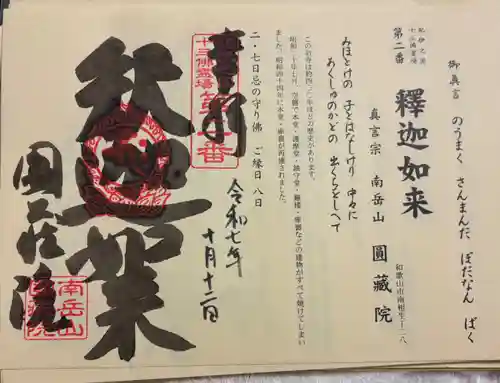 御真言 のうまく さんまんだ ぼだなん ばく
紀伊之国
十三佛霊場
第二番 釋迦如来 和歌山市南相生丁二八
真言宗 南岳山 圓藏院
みほとけの 子とはなしけり 中々に
あくしゅのかどの 出くらをしへて
昭和二十年七月、空襲で本堂・護摩堂・鎮守堂・鐘楼・庫裏などの建物がすべて焼けてしまい
ました。昭和四十四年に本堂・庫裏が再建されました。
二・七日忌の守り佛 ご縁日 八日
令和七年
十月十二日
奉拝
十三佛霊場
第二番
釈迦如来
圓蔵院
南岳山
圓蔵院